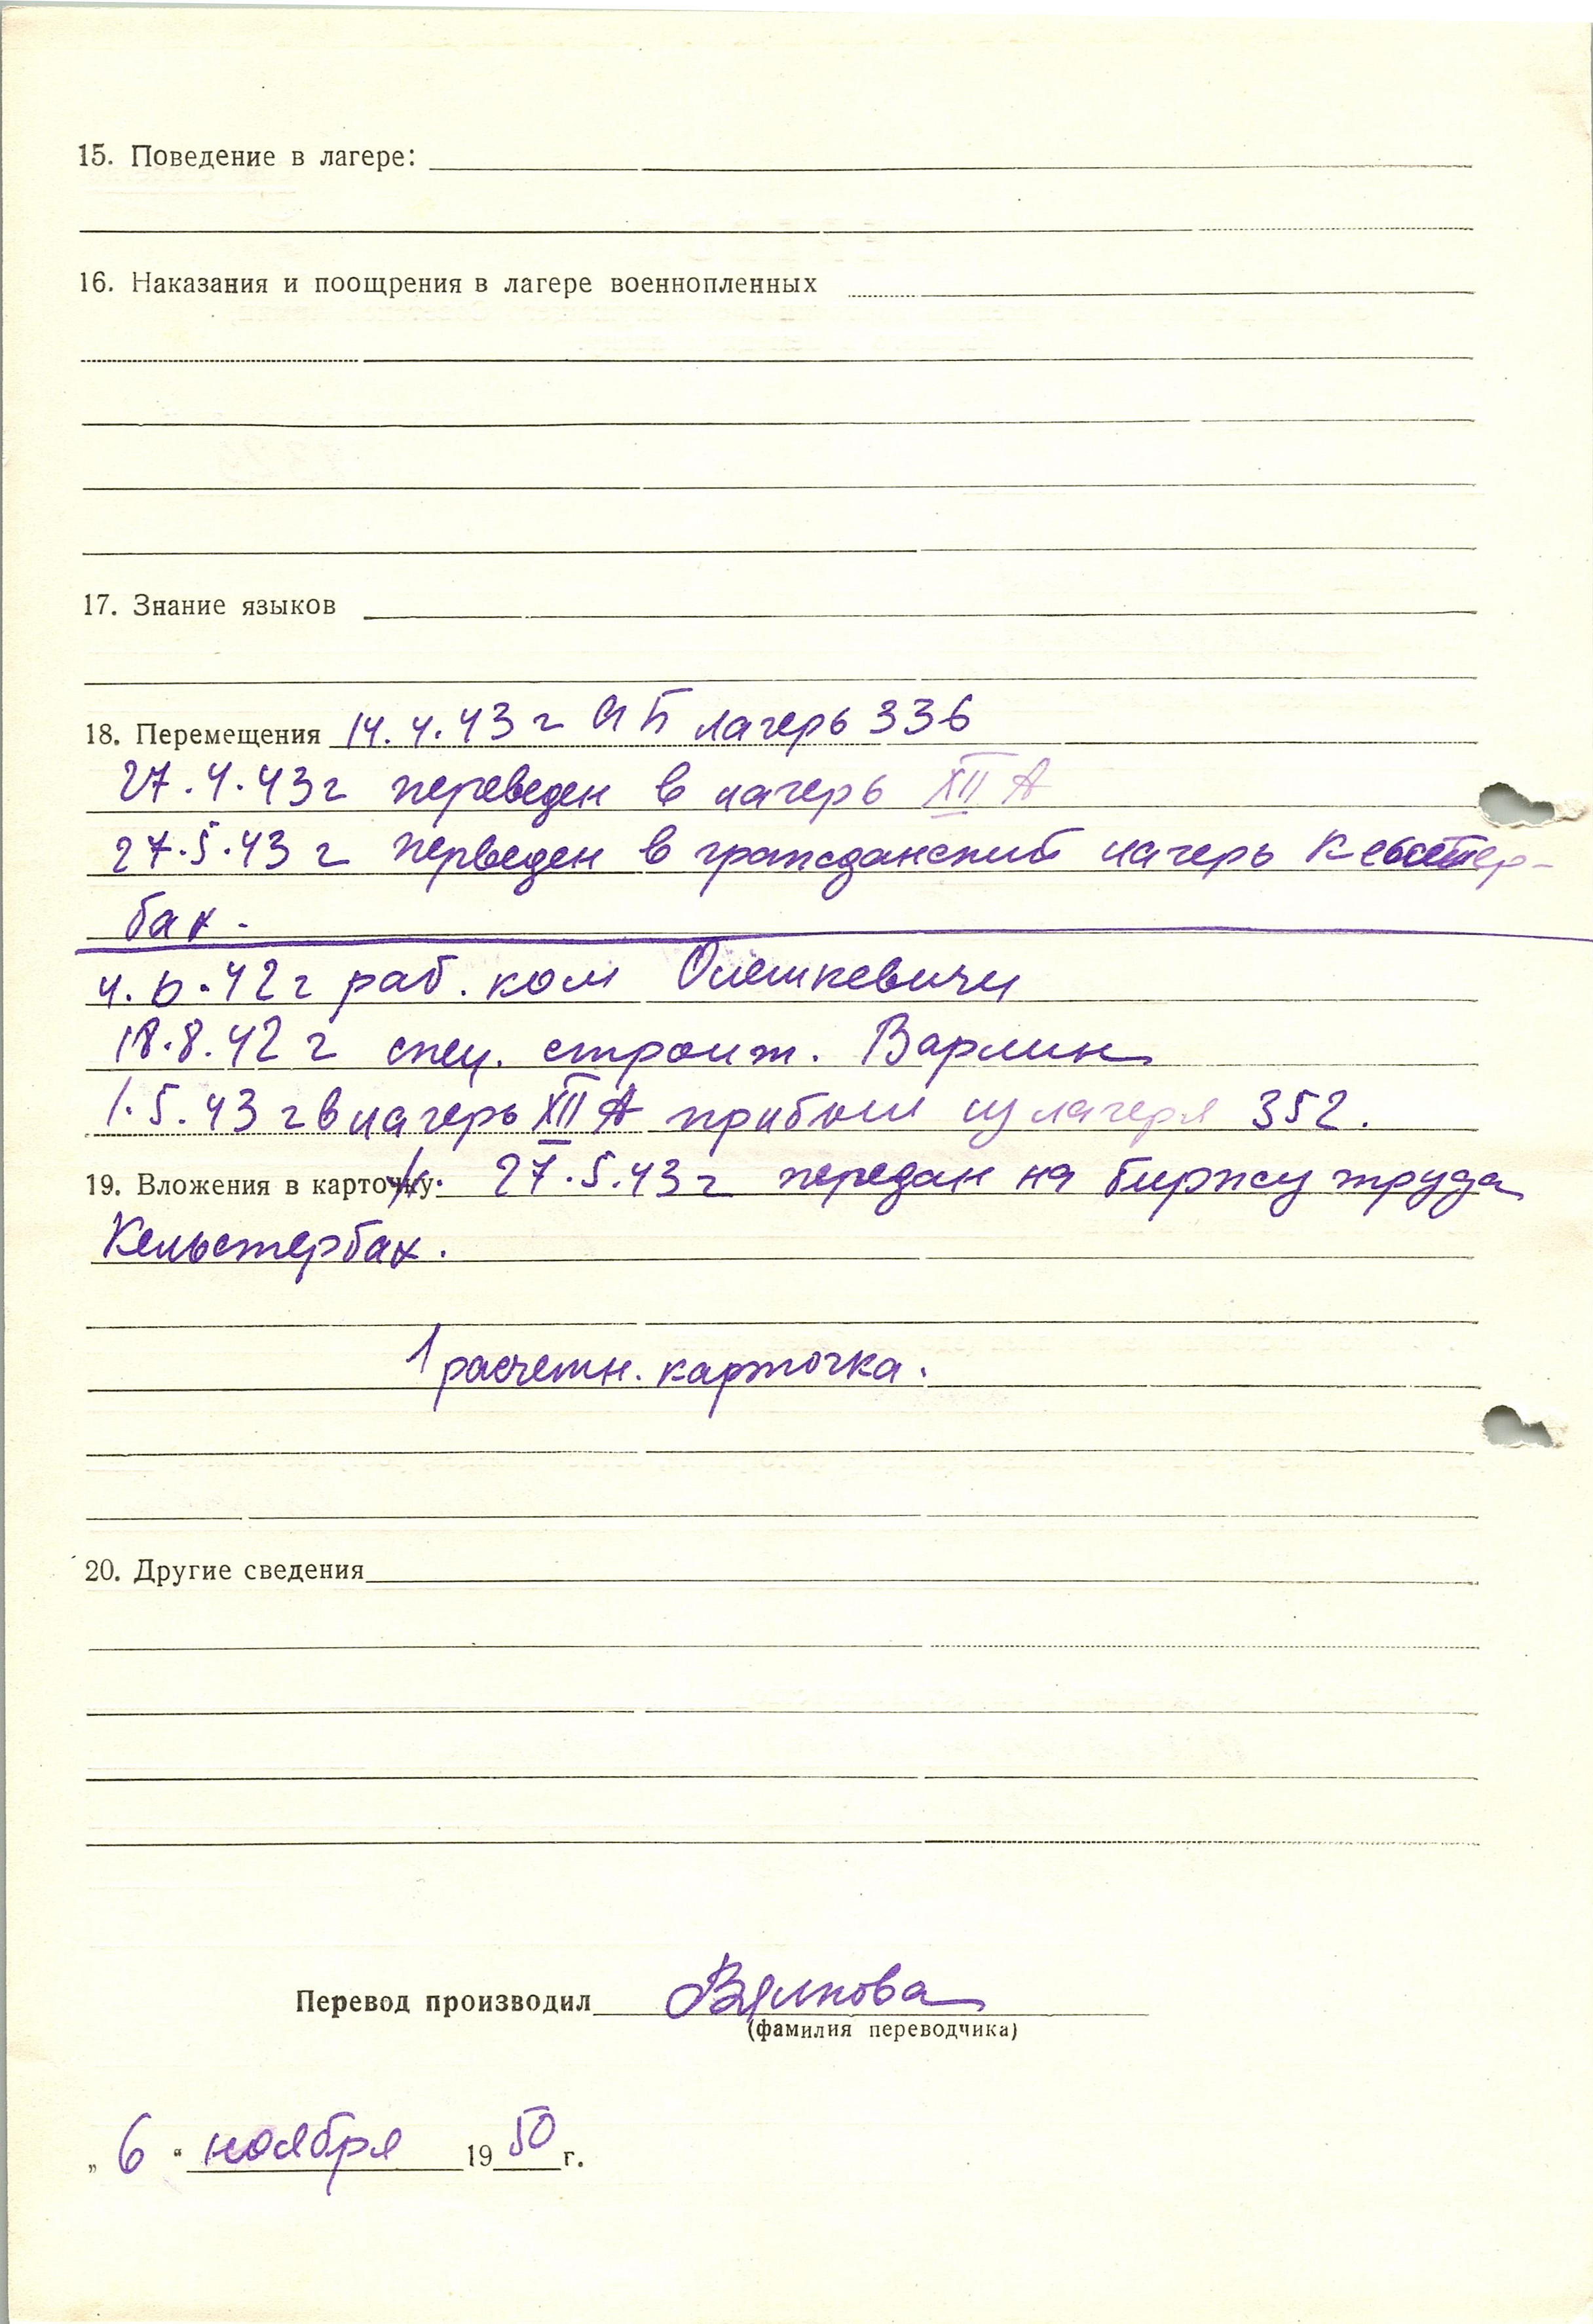 15. Поведение в лагере:
16. Наказания и поощрения в лагере военнопленных
17. Знание языков
18. Перемещения 14.4.43 г лагерь 336
27.4.43 г переведен в лагерь XII А
27.5.43 г перведен в гражданский лагерь Кельстер-
бах.
4.6.42 г раб. ком Олешкевичи
18.8.42 г спец. строит. Варлин
1.5.43 г в лагерь XII А прибыл из лагеря 352.
19. Вложения в карточку. 27.5.43 г передан на биржу труда
Кельстербах.
1 расчетн. карточка.
20. Другие сведения
Перевод производил Вялкова
(фамилия переводчика)
„ 6 “ ноября 1950 г.